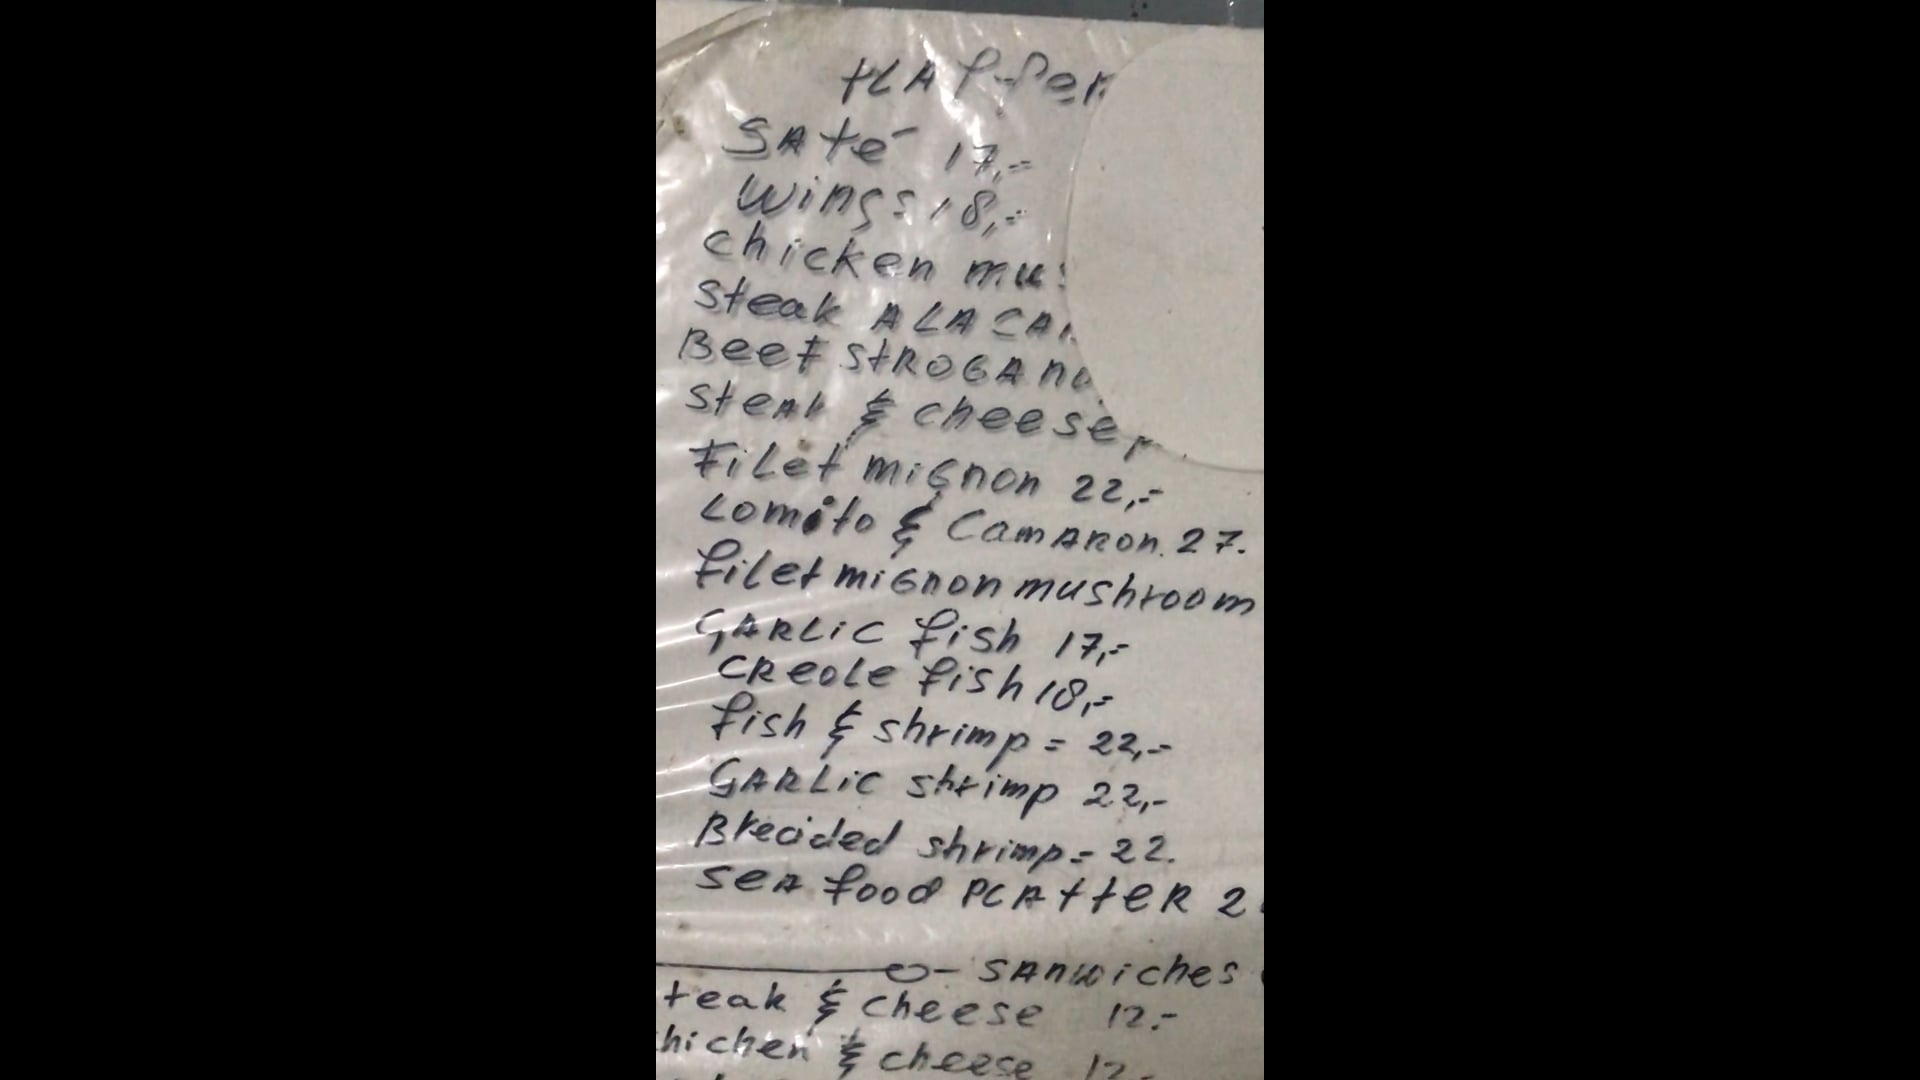 SAté 17,-
Wings 18,-
chicken
Steak A LA
Beef
Steak & cheese
Filet miGnon 22,-
Lomito & CamARon. 27.
filet miGnon mushroom
GARLiC fish 17,-
CReoLe fish 18,-
fish & shrimp = 22,-
GARLiC shrimp 22,-
Breaded shrimp = 22.
SeA food PLAtteR
SAnwiches
& cheese 12.-
& cheese 12.-